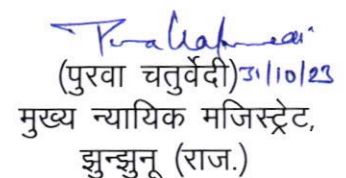 (पुरवा चतुर्वेदी) 31/10/23
मुख्य न्यायिक मजिस्ट्रेट,
झुन्झुनू (राज.)